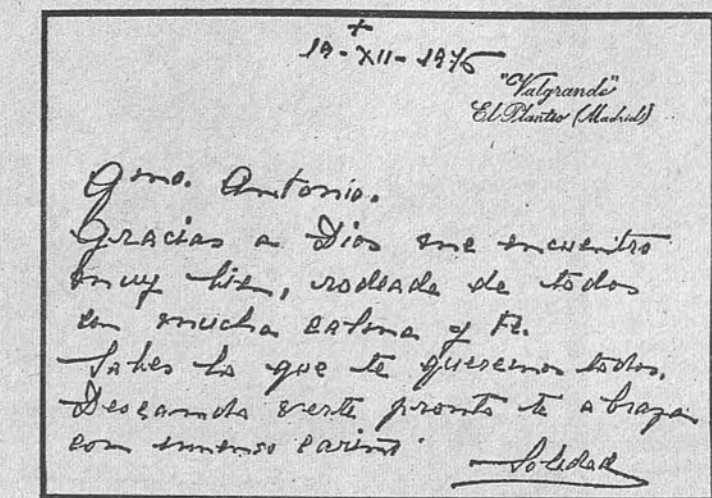 +
19-XII-1976
"Valgrande"
El Plantío (Madrid)
Qmo. Antonio.
Gracias a Dios me encuentro
muy bien, rodeada de todos
con mucha calma y Fe.
Sabes lo que te queremos todos.
Deseando verte pronto te abraza
con inmenso cariño
Soledad